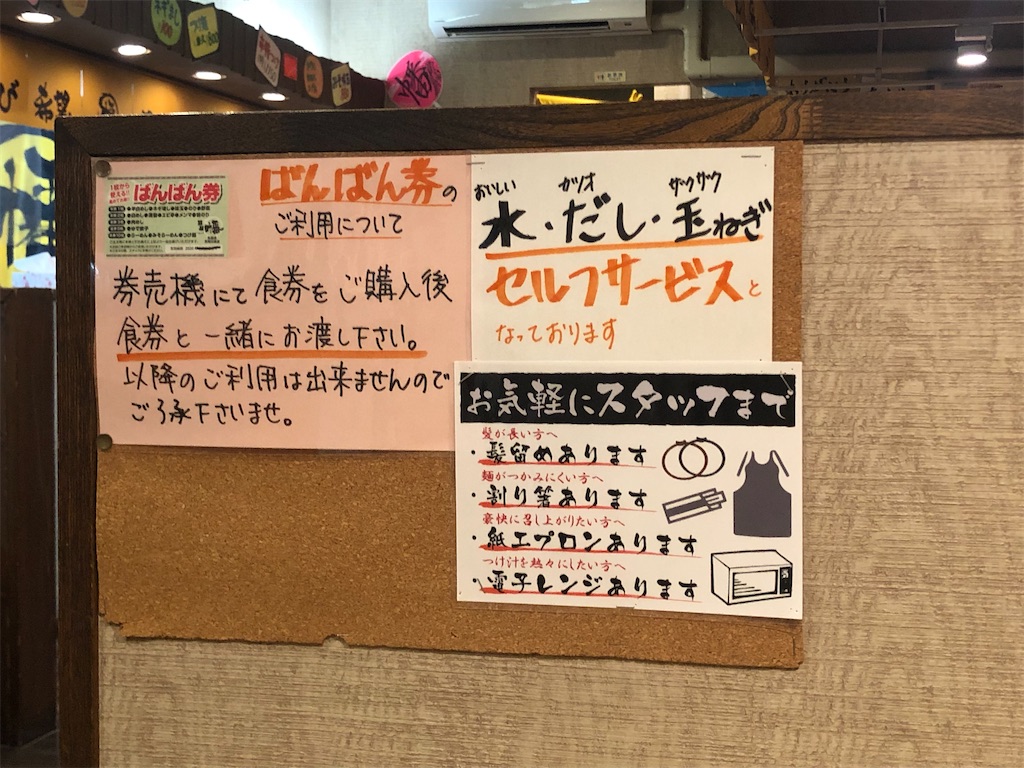 び 希望
ばんばん券
ばんばん券の
ご利用について
券売機にて食券をご購入後
食券と一緒にお渡し下さい。
以降のご利用は出来ませんので
ご了承下さいませ。
おいしい カツオ ザクザク
水・だし・玉ねぎ
セルフサービスと
なっております
お気軽にスタッフまで
髪が長い方へ
・髪留めあります
麺がつかみにくい方へ
・割り箸あります
豪快に召し上がりたい方へ
・紙エプロンあります
つけ汁を熱々にしたい方へ
・電子レンジあります